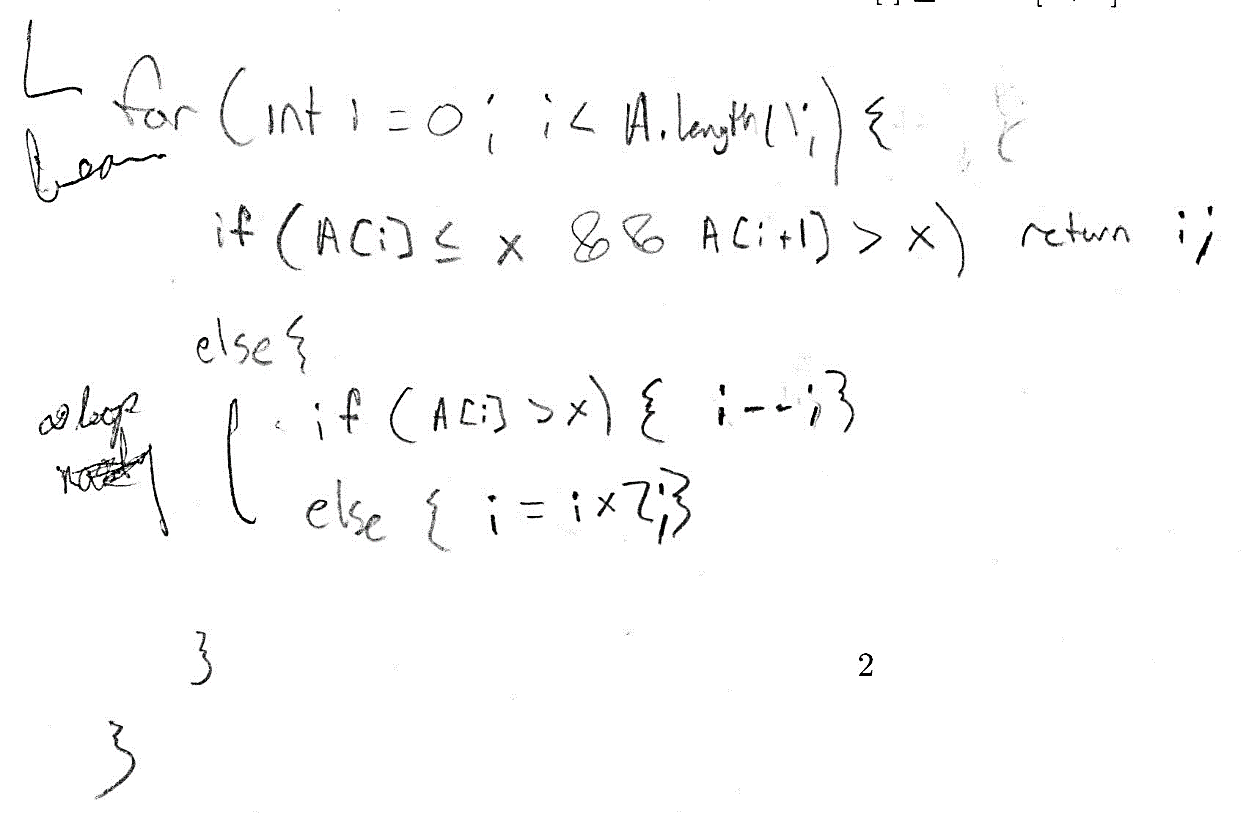 for (int i = 0; i < A.length(); ) {
if (A[i] ≤ x && A[i+1] > x) return i;
else {
∞ loop
if (A[i] > x) { i--; }
else { i = i × 2; }
}
2
}